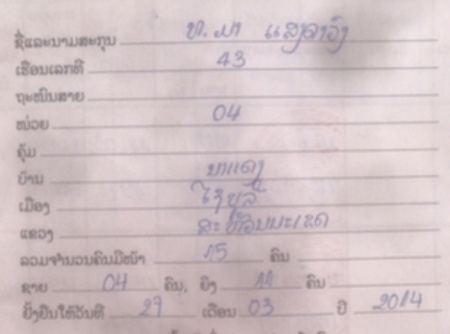 ຊື່ແລະນາມສະກຸນ ທ. ມາ ແສງລາວົງ
ເຮືອນເລກທີ 43
ຖະໜົນສາຍ
ໜ່ວຍ 04
ຄຸ້ມ
ບ້ານ ນາແດງ
ເມືອງ ໄຊບູລີ
ແຂວງ ສະຫວັນນະເຂດ
ລວມຈຳນວນຄົນມີໜ້າ 15 ຄົນ
ຊາຍ 04 ຄົນ, ຍິງ 11 ຄົນ
ຢັ້ງຢືນໃຫ້ວັນທີ 29 ເດືອນ 03 ປີ 2014